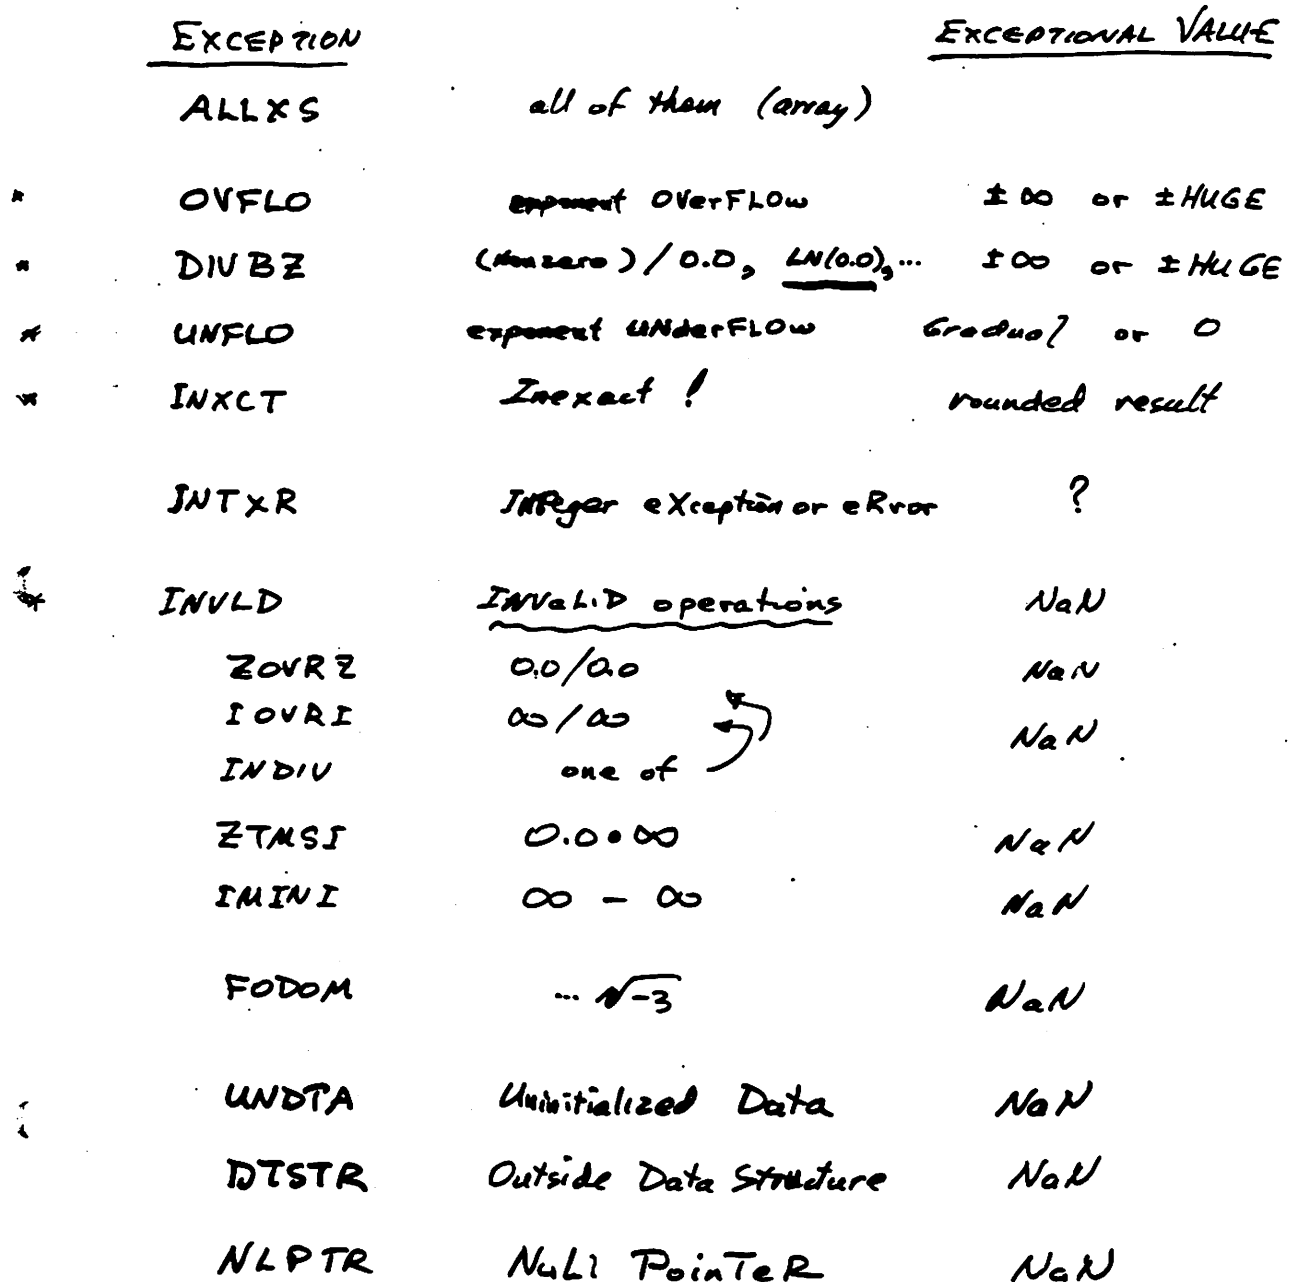 EXCEPTION EXCEPTIONAL VALUE
ALLXS all of them (array)
* OVFLO exponent OVerFLOw ± ∞ or ± HUGE
* DIVBZ (Nonzero)/0.0, LN(0.0),... ± ∞ or ± HUGE
* UNFLO exponent UNderFLOw Gradual or 0
* INXCT Inexact! rounded result
INTXR INTeger eXception or eRror ?
* INVLD INVaLiD operations NaN
ZOVRZ 0.0/0.0 NaN
IOVRI ∞/∞ NaN
INDIV one of
ZTMSI 0.0 • ∞ NaN
IMINI ∞ - ∞ NaN
FODOM ... √-3 NaN
UNDTA Uninitialized Data NaN
DTSTR Outside Data Structure NaN
NLPTR NuLl PoinTeR NaN